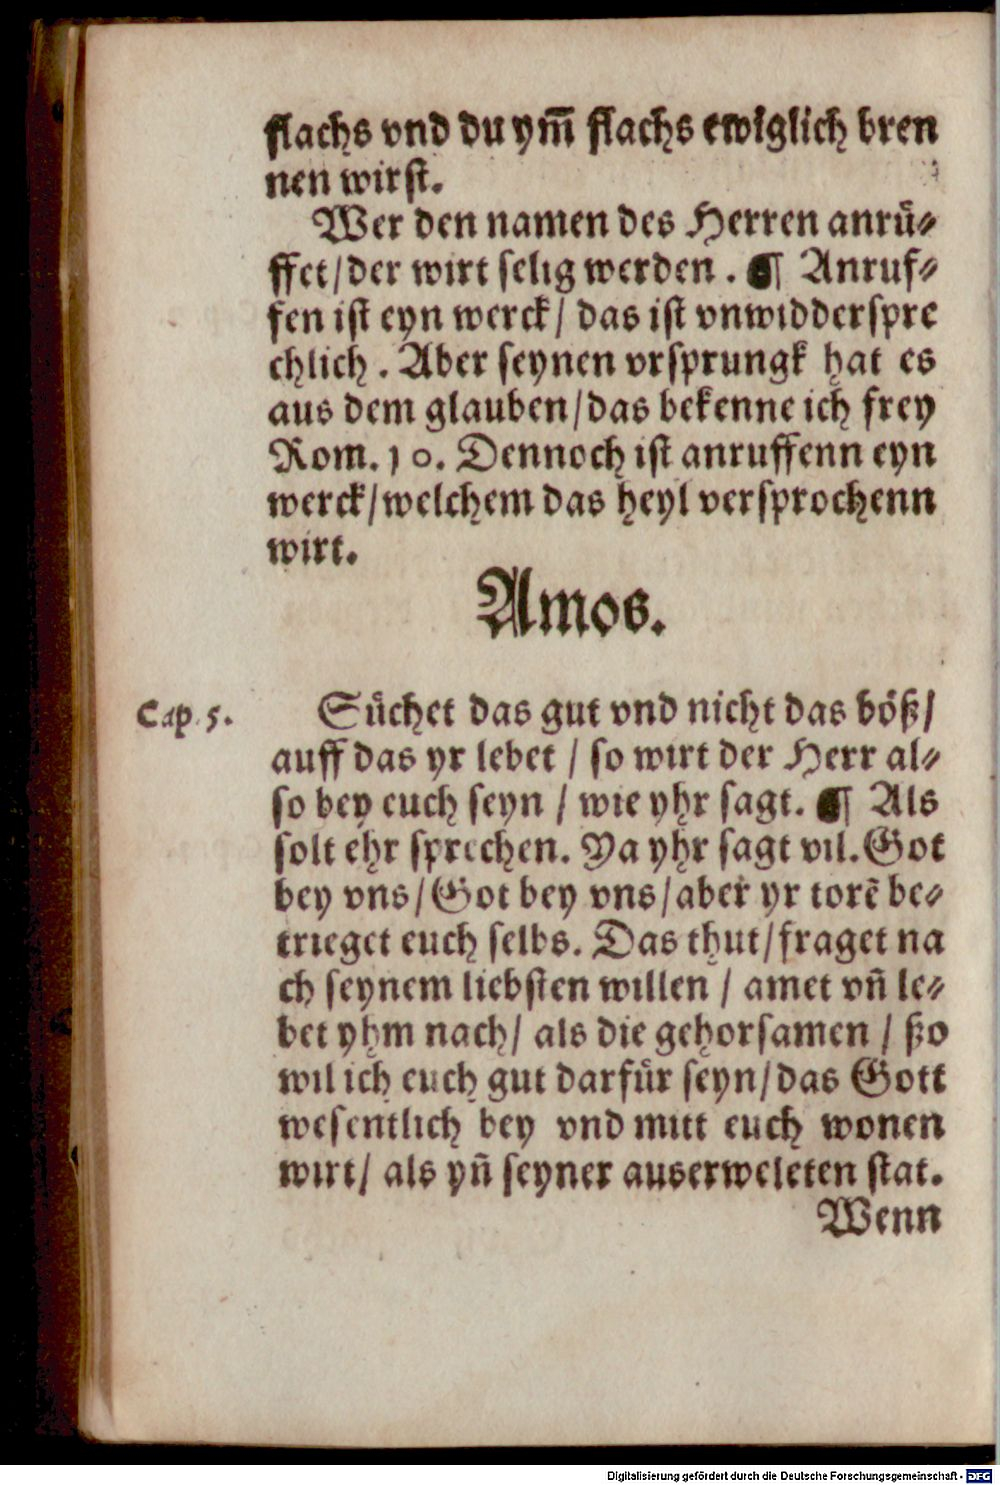 flachs vnd du ym̄ flachs ewiglich bren
nen wirst.
Wer den namen des Herren anrüͤ-
ffet/der wirt selig werden . ¶ Anruf-
fen ist eyn werck/ das ist vnwidderspre
chlich . Aber seynen vrsprungk hat es
aus dem glauben/das bekenne ich frey
Rom. 10. Dennoch ist anruffenn eyn
werck/welchem das heyl versprochenn
wirt.
Amos.
Cap. 5.
Suͤchet das gut vnd nicht das boͤß/
auff das yr lebet / so wirt der Herr al-
so bey euch seyn / wie yhr sagt. ¶ Als
solt ehr sprechen. Ya yhr sagt vil. Got
bey vns/Got bey vns/aber yr torē be-
trieget euch selbs. Das thut/fraget na
ch seynem liebsten willen / amet vn̄ le-
bet yhm nach/ als die gehorsamen / ßo
wil ich euch gut darfuͤr seyn/das Gott
wesentlich bey vnd mitt euch wonen
wirt/ als yn̄ seyner auserweleten stat.
Wenn
Digitalisierung gefördert durch die Deutsche Forschungsgemeinschaft - DFG